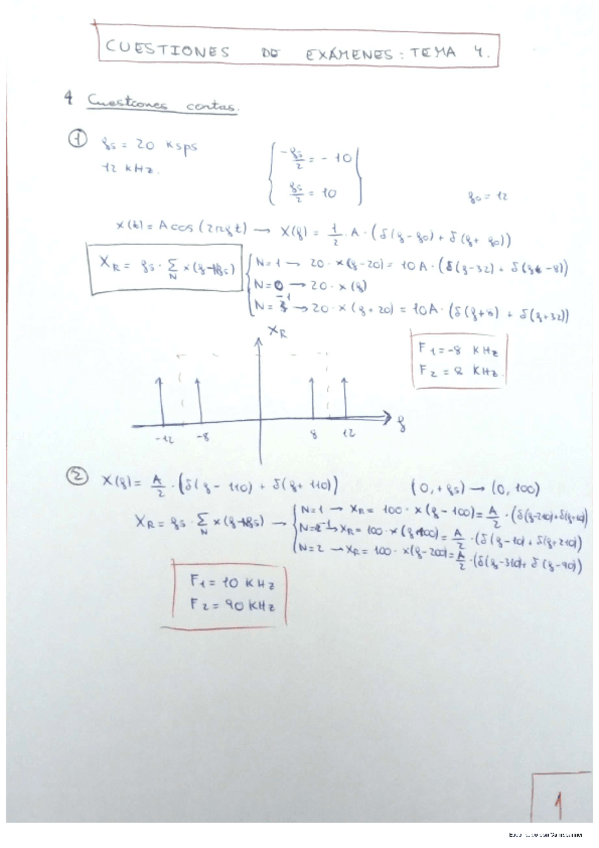 CUESTIONES DE EXÁMENES: TEMA 4.
4 Cuestiones cortas.
① fs = 20 Ksps
12 KHz.
{ -fs/2 = -10
fs/2 = 10 }
f0 = 12
X(t) = A cos(2πft) → X(f) = 1/2 · A · (δ(f - f0) + δ(f + f0))
XR = fs · Σ N X(f - Nfs)
N=1 → 20 · X(f-20) = 10A · (δ(f-32) + δ(f-8))
N=0 → 20 · X(f)
N=-1 → 20 · X(f+20) = 10A · (δ(f+8) + δ(f+32))
XR
F1 = -8 KHz
F2 = 8 KHz.
-12 -8 8 12 f
② X(f) = A/2 · (δ(f - 110) + δ(f + 110))
(0, +fs) → (0, 100)
XR = fs · Σ N X(f - Nfs) →
N=1 → XR = 100 · X(f - 100) = A/2 · (δ(f-210) + δ(f+10))
N=-1 → XR = 100 · X(f+100) = A/2 · (δ(f-10) + δ(f+210))
N=2 → XR = 100 · X(f-200) = A/2 · (δ(f-310) + δ(f-90))
F1 = 10 KHz
F2 = 90 KHz
1